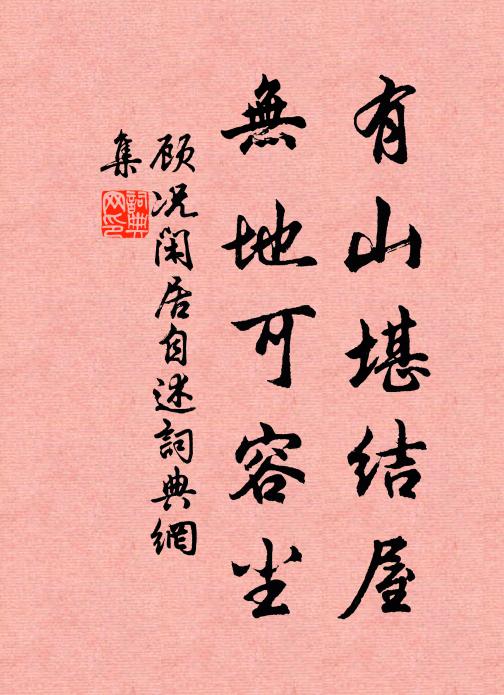 有山堪结屋
無地可容尘
顾况闲居自述詞典網
集
詞典
网印